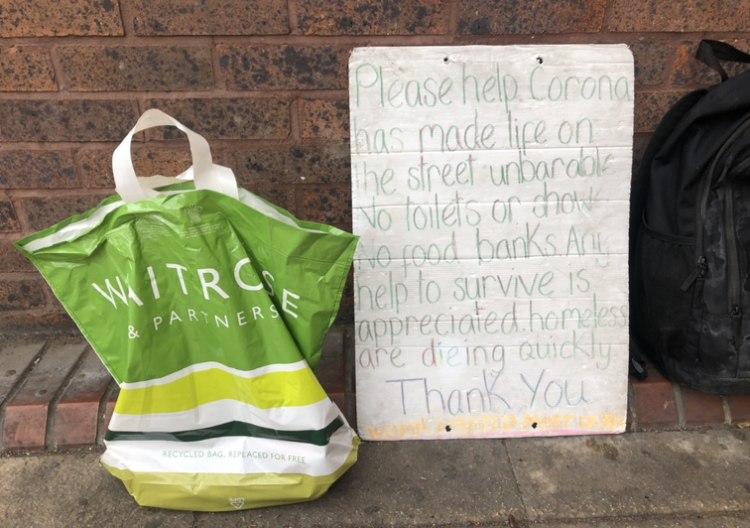 WAITROSE
& PARTNERS
RECYCLED BAG, REPLACED FOR FREE
Please help. Corona
has made life on
the street unbarable
No toilets or show
No food banks. Any
help to survive is
appreciated. homeless
are dieing quickly
Thank You